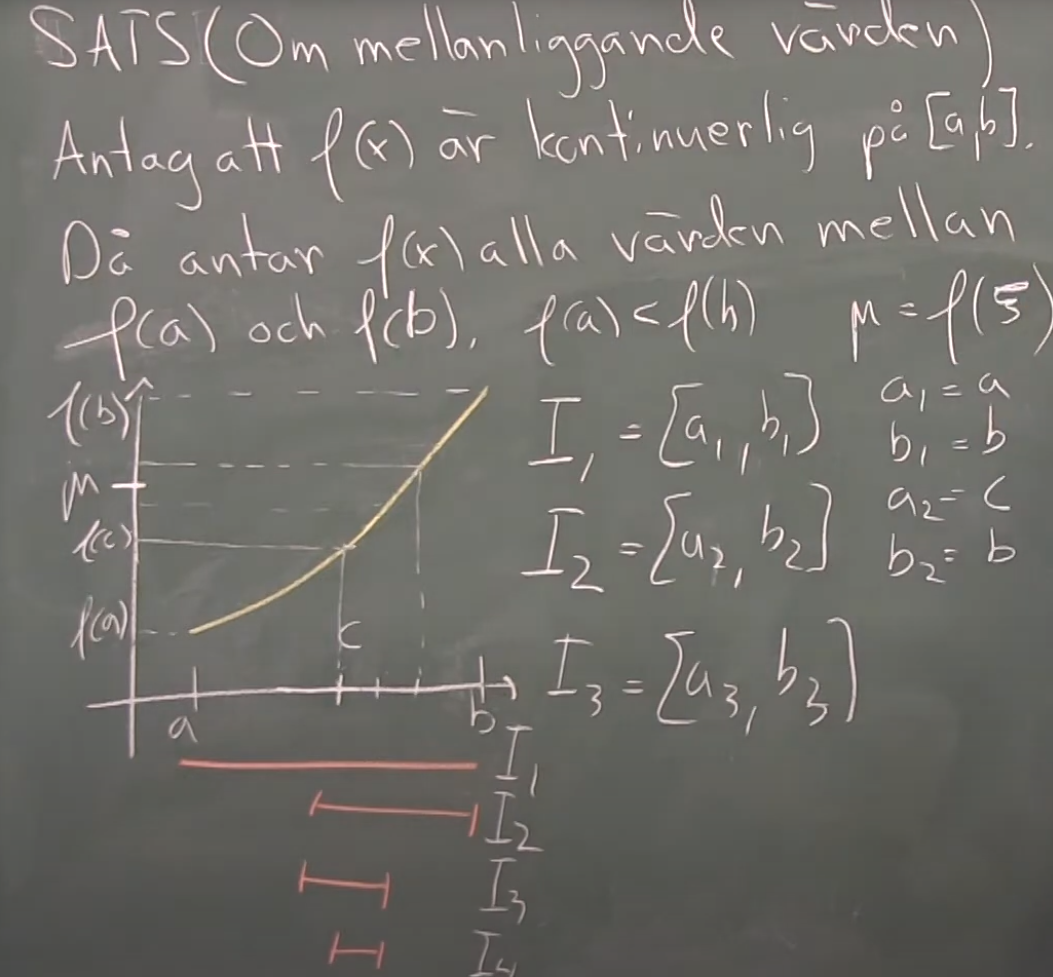 SATS (Om mellanliggande värden)
Antag att f(x) är kontinuerlig på [a,b].
Då antar f(x) alla värden mellan
f(a) och f(b). f(a) < f(b) μ = f(ξ)
f(b)
μ
f(c)
f(a)
c
a
b
I₁ = [a₁, b₁] a₁ = a
b₁ = b
I₂ = [a₂, b₂] a₂ = c
b₂ = b
I₃ = [a₃, b₃]
I₁
I₂
I₃
I₄